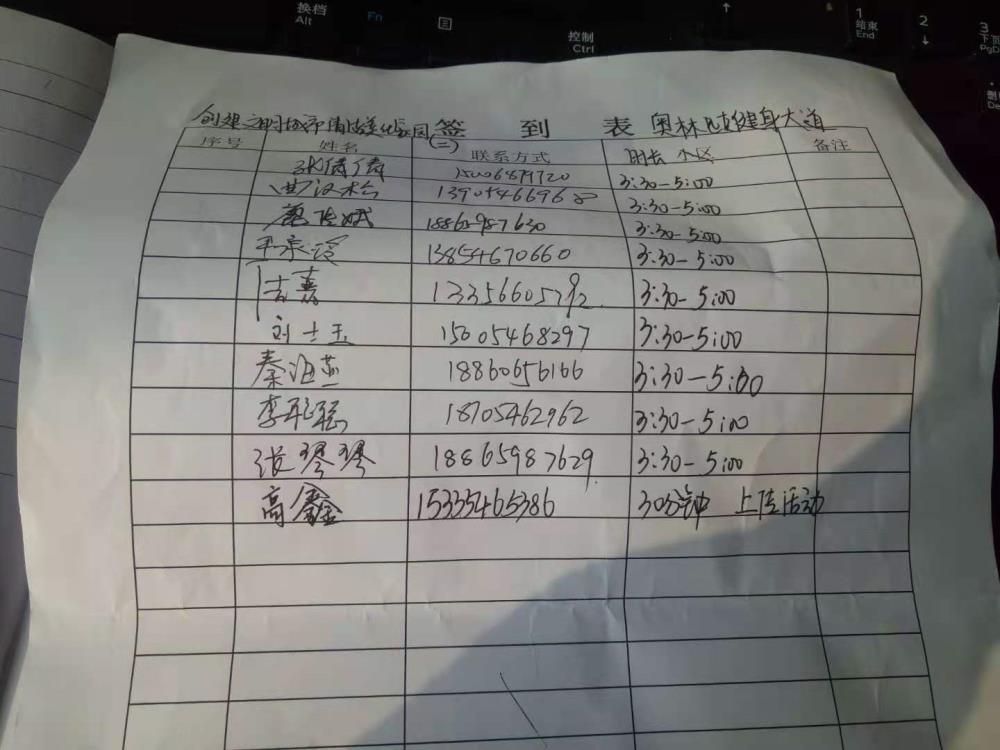 换档 Alt
Fn
控制 Ctrl
1 结束 End
2
3 PgD
创建文明城市 清洁美化家园(二) 签到表 奥林匹克健身大道
序号 姓名 联系方式 时长 小区 备注
张倩倩 3:30-5:00
曲汉松 3:30-5:00
18865987630 3:30-5:00
13854670660 3:30-5:00
吉嘉 3:30-5:00
刘士玉 15005468297 3:30-5:00
秦海燕 18860656166 3:30-5:00
李 18705462962 3:30-5:00
张琴琴 18865987629 3:30-5:00
高鑫 15335465386 30分钟 上传活动